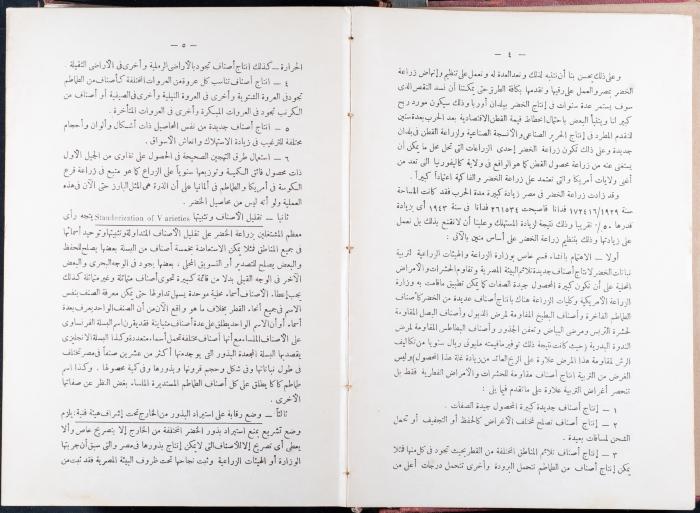 — ٤ —
وعلى ذلك يحسن بنا أن نتنبه لذلك ونعد العدة له ونعمل على تنظيم وإنهاض زراعة
الخضر بمصر والعمل على رقيها ونقدمها بكافة الطرق حتى يمكننا أن نسد النقص الذى
سوف يستمر عدة سنوات فى إنتاج الخضر ببلدان أوربا وذلك سيكون مورد ربح
كبير لنا ويتنبأ البعض باحتمال انحطاط قيمة القطن الاقتصادية بعد الحرب بعدة سنين
لتقدم المطرد فى إنتاج الحرير الصناعى والأنسجة الصناعية وزراعة القطن فى بلدان
جديدة وعلى ذلك تكون زراعة الخضر إحدى الزراعات التى تحل محل ما يمكن أن
يستغنى عنه من زراعة محصول القطن كما هو الواقع فى ولاية كاليفورنيا التى تعد من
أغنى ولايات أمريكا والتى تعتمد على زراعة الخضر والفاكهة اعتماداً كبيراً .
وقد زادت زراعة الخضر فى مصر زيادة كبيرة مدة الحرب فقد كانت المساحة
سنة ١٩٣٩/ ١٧٢٤١٦ فدانا فاصبحت ٢٦١٥٣٤ فدانا فى سنة ١٩٤٣ أى بزيادة
قدرها ٥٠ ٪ تقريبا وذلك نتيجة لزيادة المستهلك وعلينا أن لانقنع بذلك بل نعمل
على زيادتها وذلك بتنظيم زراعة الخضر على أساس متين بالآتى :
أولا — الاهتمام بانشاء قسم خاص بوزارة الزراعة والهيئات الزراعية لتربية
نباتات الخضر لانتاج أصناف جديدة تلائم البيئة المصرية وتقاوم الحشرات والأمراض
المحلية على أن تكون كبيرة المحصول جيدة الصفات كما يمكن تطبيق ماقامت به وزارة
الزراعة الأمريكية وكليات الزراعة هناك بانتاج أصناف عديدة من الخضر كأصناف
الطماطم الفاخرة وأصناف البطيخ المقاومة لمرض الذبول وأصناف البصل المقاومة
لحشرة التربس ومرض البياض وتعفن الجذور وأصناف البطاطس المقاومة لمرض
الندوة البدرية (حيث كانت نتيجة ذلك توفير ماقيمته مليونى ريال سنويا من تكاليف
الرش لمقاومة هذا المرض علاوة على الربح العائد من زيادة غلة هذا المحصول) وليس
الغرض من التربية إنتاج أصناف مقاومة للحشرات والأمراض الفطرية فقط بل
تنحصر أغراض التربية علاوة على ما تقدم فيما يلى :
١ — إنتاج أصناف جديدة كبيرة المحصول جيدة الصفات .
٢ — إنتاج أصناف تصلح لمختلف الأغراض كالحفظ أو التجفيف أو تحمل
الشحن لمسافات بعيدة .
٣ — إنتاج أصناف تلائم المناطق المختلفة من القطر بحيث تجود فى كل منها فمثلا
يمكن إنتاج أصناف من الطماطم تتحمل البرودة وأخرى تتحمل درجات أعلى من
— ٥ —
الحرارة — كذلك إنتاج أصناف تجود بالأراضى الرملية وأخرى فى الأراضى الثقيلة
٤ — إنتاج أصناف تناسب كل عروة من العروات المختلفة كأصناف من الطماطم
تجود فى العروة الشتوية وأخرى فى العروة النيلية وأخرى فى الصيفية أو أصناف من
الكرنب تجود فى العروات المبكرة وأخرى فى العروات المتأخرة .
٥ — إنتاج أصناف جديدة من نفس المحاصيل ذات أشكال وألوان وأحجام
مختلفة للترغيب فى زيادة الاستهلاك وإنعاش الأسواق .
٦ — استعمال طرق التهجين الصحيحة فى الحصول على تقاوى من الجيل الأول
ذات محصول فائق الكمية وتوزيعها سنوياً على الزراع كما هو متبع فى زراعة قرع
الكوسة فى أمريكا والطماطم فى ألمانيا على أن الذرة هى المثل البارز حتى الآن فى هذه
العملية ولو أنه ليس من محاصيل الخضر .
ثانيا — تقليل الأصناف وتثبيتها Standerization of Varieties يتجه رأى
معظم المشتغلين بزراعة الخضر على تقليل الأصناف المتداولة وتثبيتها وتوحيد أسمائها
فى جميع المناطق فمثلا يمكن الاستعاضة بخمسة أصناف من البسلة بعضها يصلح للحفظ
والبعض يصلح للتصدير أو التسويق المحلى ، بعضها يجود فى الوجه البحرى والبعض
الآخر فى الوجه القبلى بدلا من قائمة كبيرة تحوى أصناف متماثلة وغير متماثلة كذلك
يجب إعطاء الأصناف أسماء محلية موحدة يسهل تداولها حتى يمكن معرفة الصنف بنفس
الاسم فى جميع أنحاء القطر بخلاف ما هو واقع الآن من أن الصنف الواحد يعرف بعدة
أسماء أو أن الاسم الواحد يطلق على عدة أصناف متباينة فقد يقرن اسم البسلة الفرنساوى
على الأصناف الملساء مع أنها أصناف مختلفة تحمل أسماء متعددة وكذا البسلة الانجليزى
يقصد بها البسلة المجعدة البذور التى يوجد منها أكثر من عشرين صنفاً فى مصر تختلف
فى طول نباتاتها وفى شكل وحجم قرونها وبذورها وفى كمية محصولها . وكذا اسم
طماطم كاكا يطلق على كل أصناف الطماطم المستديرة الملساء بغض النظر عن صفاتها
الأخرى .
ثالثاً — وضع رقابة على استيراد البذور من الخارج تحت إشراف هيئة فنية : يلزم
وضع تشريع بمنع استيراد بذور الخضر المختلفة من الخارج إلا بتصريح خاص وألا
يعطى أى تصريح إلا للأصناف التى لايمكن إنتاج بذورها فى مصر والتى سبق أن جربتها
الوزارة أو الهيئات الزراعية وثبت نجاحها تحت ظروف البيئة المصرية فقد ثبت من